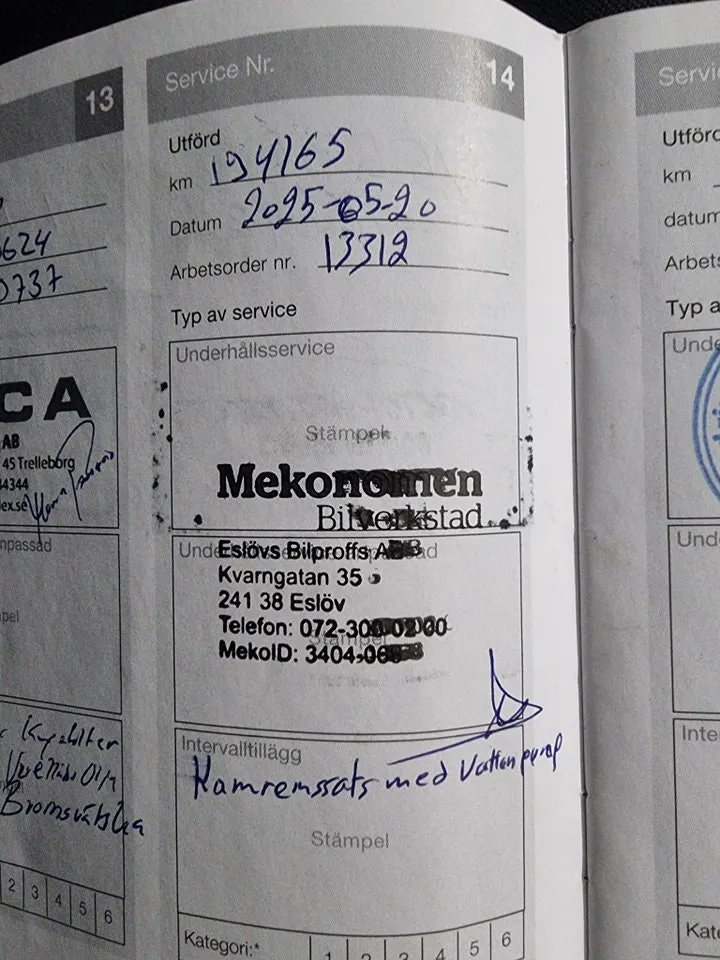 13
624
0737
CA
AB
45 Trelleborg
44344
ex.se
npassad
pel
Bromsvätska
2 3 4 5 6
Service Nr. 14
Utförd
km 194165
Datum 2025-05-20
Arbetsorder nr. 13312
Typ av service
Underhållsservice
Stämpel
Mekonomen
Bilverkstad
Eslövs Bilproffs AB
Kvarngatan 35
241 38 Eslöv
Telefon: 072-300 02 00
MekoID: 3404
Stämpel
Intervalltillägg
Kamremssats med Vattenpump
Stämpel
Kategori:* 1 2 3 4 5 6
Servi
Utförd
km
datum
Arbets
Typ a
Unde
Und
Inte
Kate